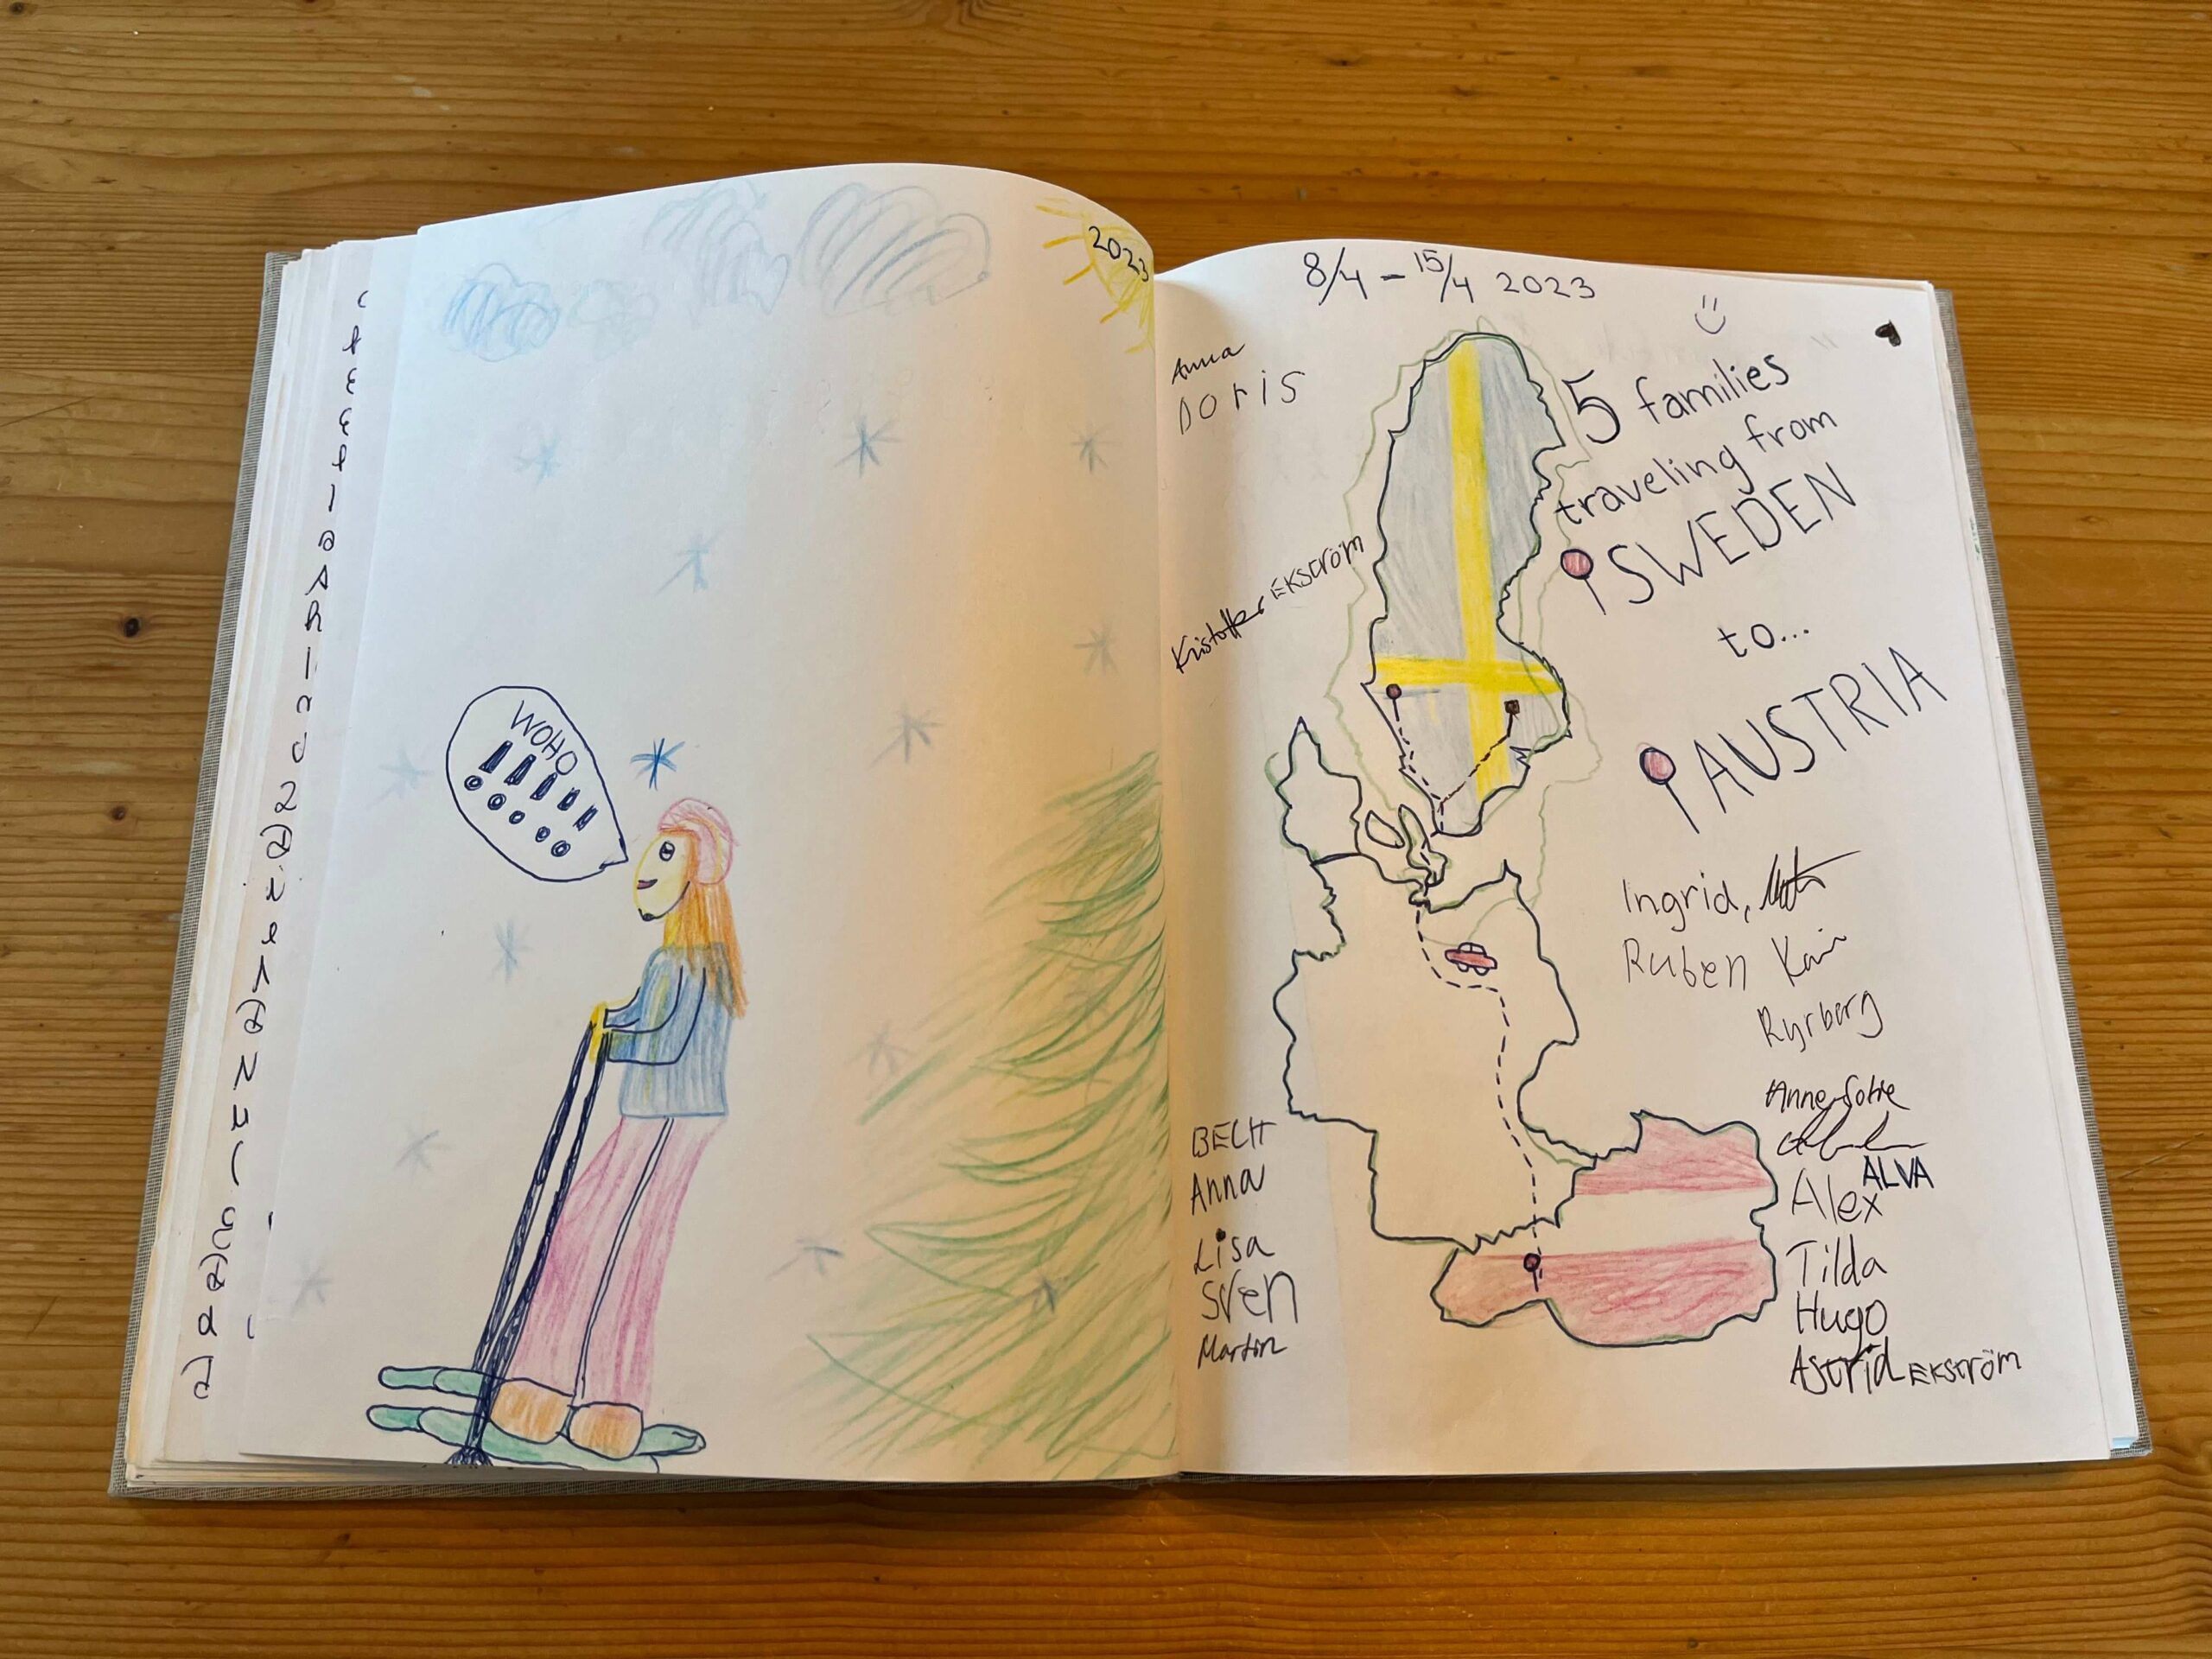 2023
WOHO
!!!!!
8/4 - 15/4 2023
Anna
Doris
5 families
traveling from
SWEDEN
to...
AUSTRIA
Kristoffer EKSTRÖM
Ingrid,
Ruben
Ryrberg
Anne-Sofie
ALVA
Alex
Tilda
Hugo
Astrid EKSTRÖM
BECH
Anna
Lisa
Sven
Martin